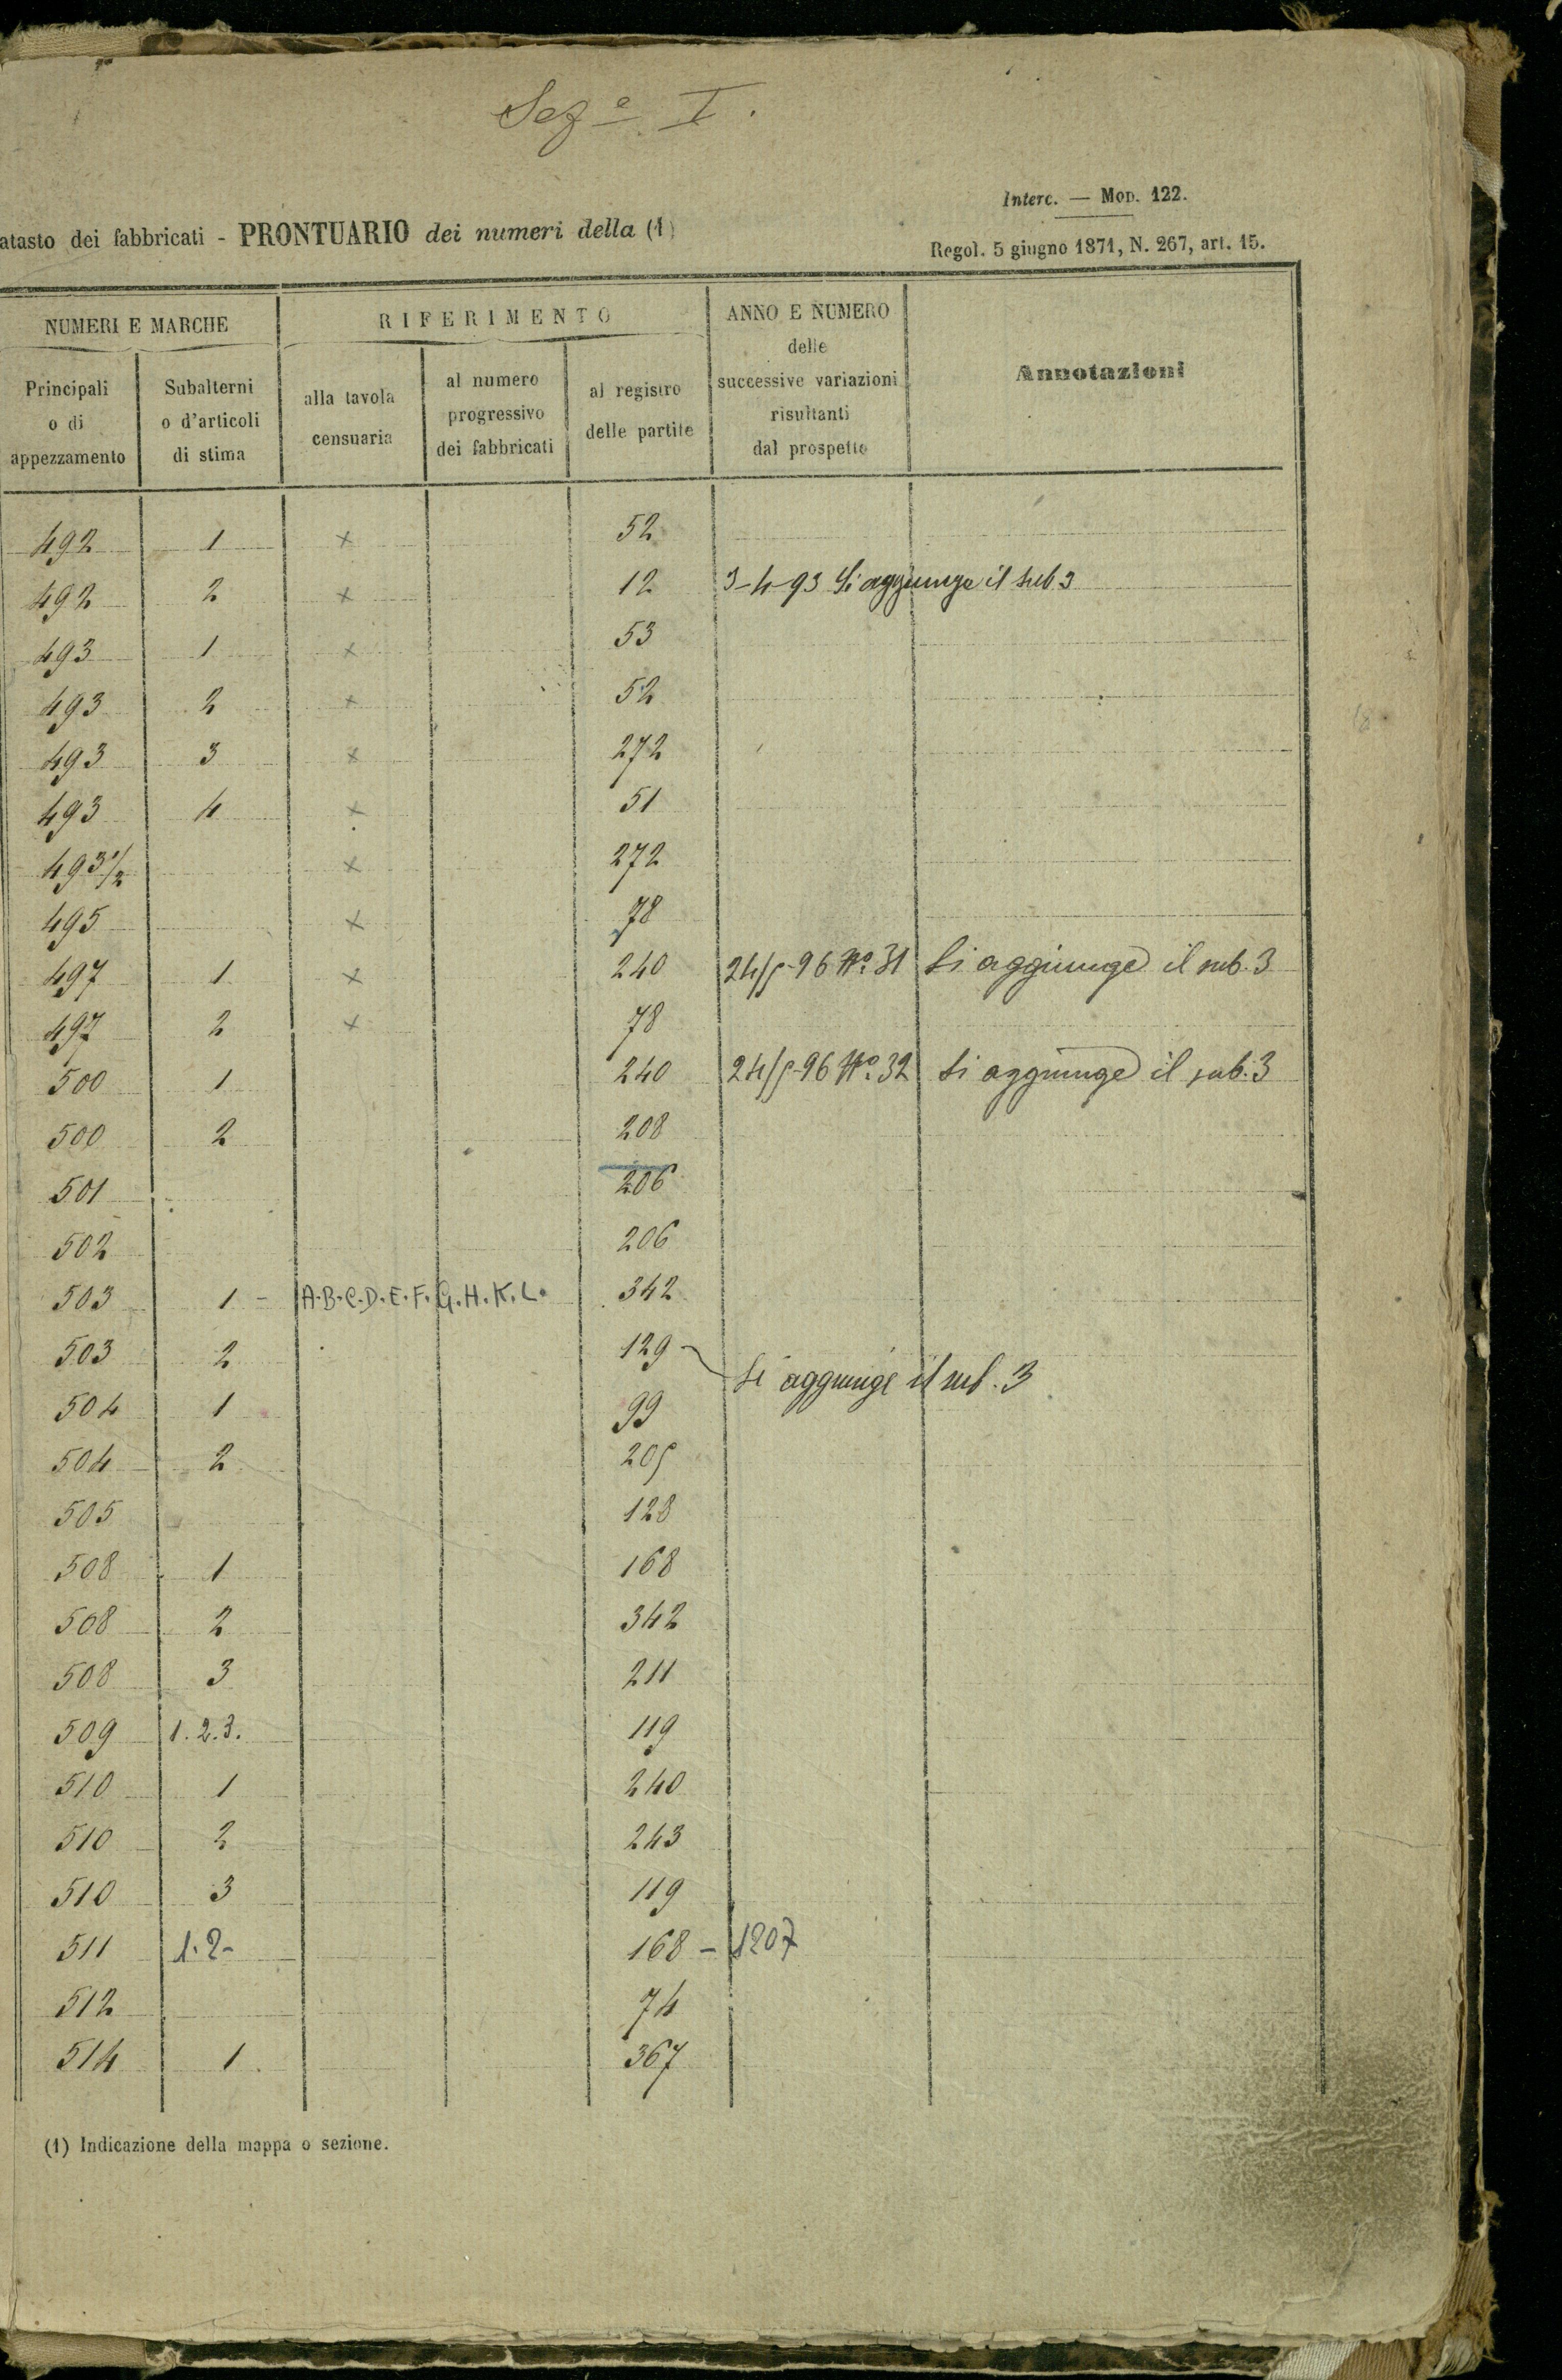 Sez.e I.
Interc. — Mod. 122.
atasto dei fabbricati - PRONTUARIO dei numeri della (1)
Regol. 5 giugno 1871, N. 267, art. 15.
NUMERI E MARCHE
RIFERIMENTO
ANNO E NUMERO
delle
successive variazioni
risultanti
dal prospetto
Annotazioni
Principali
o di
appezzamento
Subalterni
o d'articoli
di stima
alla tavola
censuaria
al numero
progressivo
dei fabbricati
al registro
delle partite
492 1 x 52
492 2 x 12 3-4-93 Si aggiunge il sub 3
493 1 x 53
493 2 x 52
493 3 x 272
493 4 x 51
493 1/2 x 272
495 x 78
497 1 x 240 24/5-96 No. 31 Si aggiunge il sub. 3
497 2 x 78
500 1 240 24/5-96 No. 32 Si aggiunge il sub. 3
500 2 208
501 206
502 206
503 1 - A.B.C.D.E.F.G.H.K.L. 342
503 2 129
Si aggiunge il sub. 3
504 1 99
504 2 205
505 128
508 1 168
508 2 342
508 3 211
509 1.2.3. 119
510 1 240
510 2 243
510 3 119
511 1.2- 168 - 1207
512 74
514 1 367
(1) Indicazione della mappa o sezione.